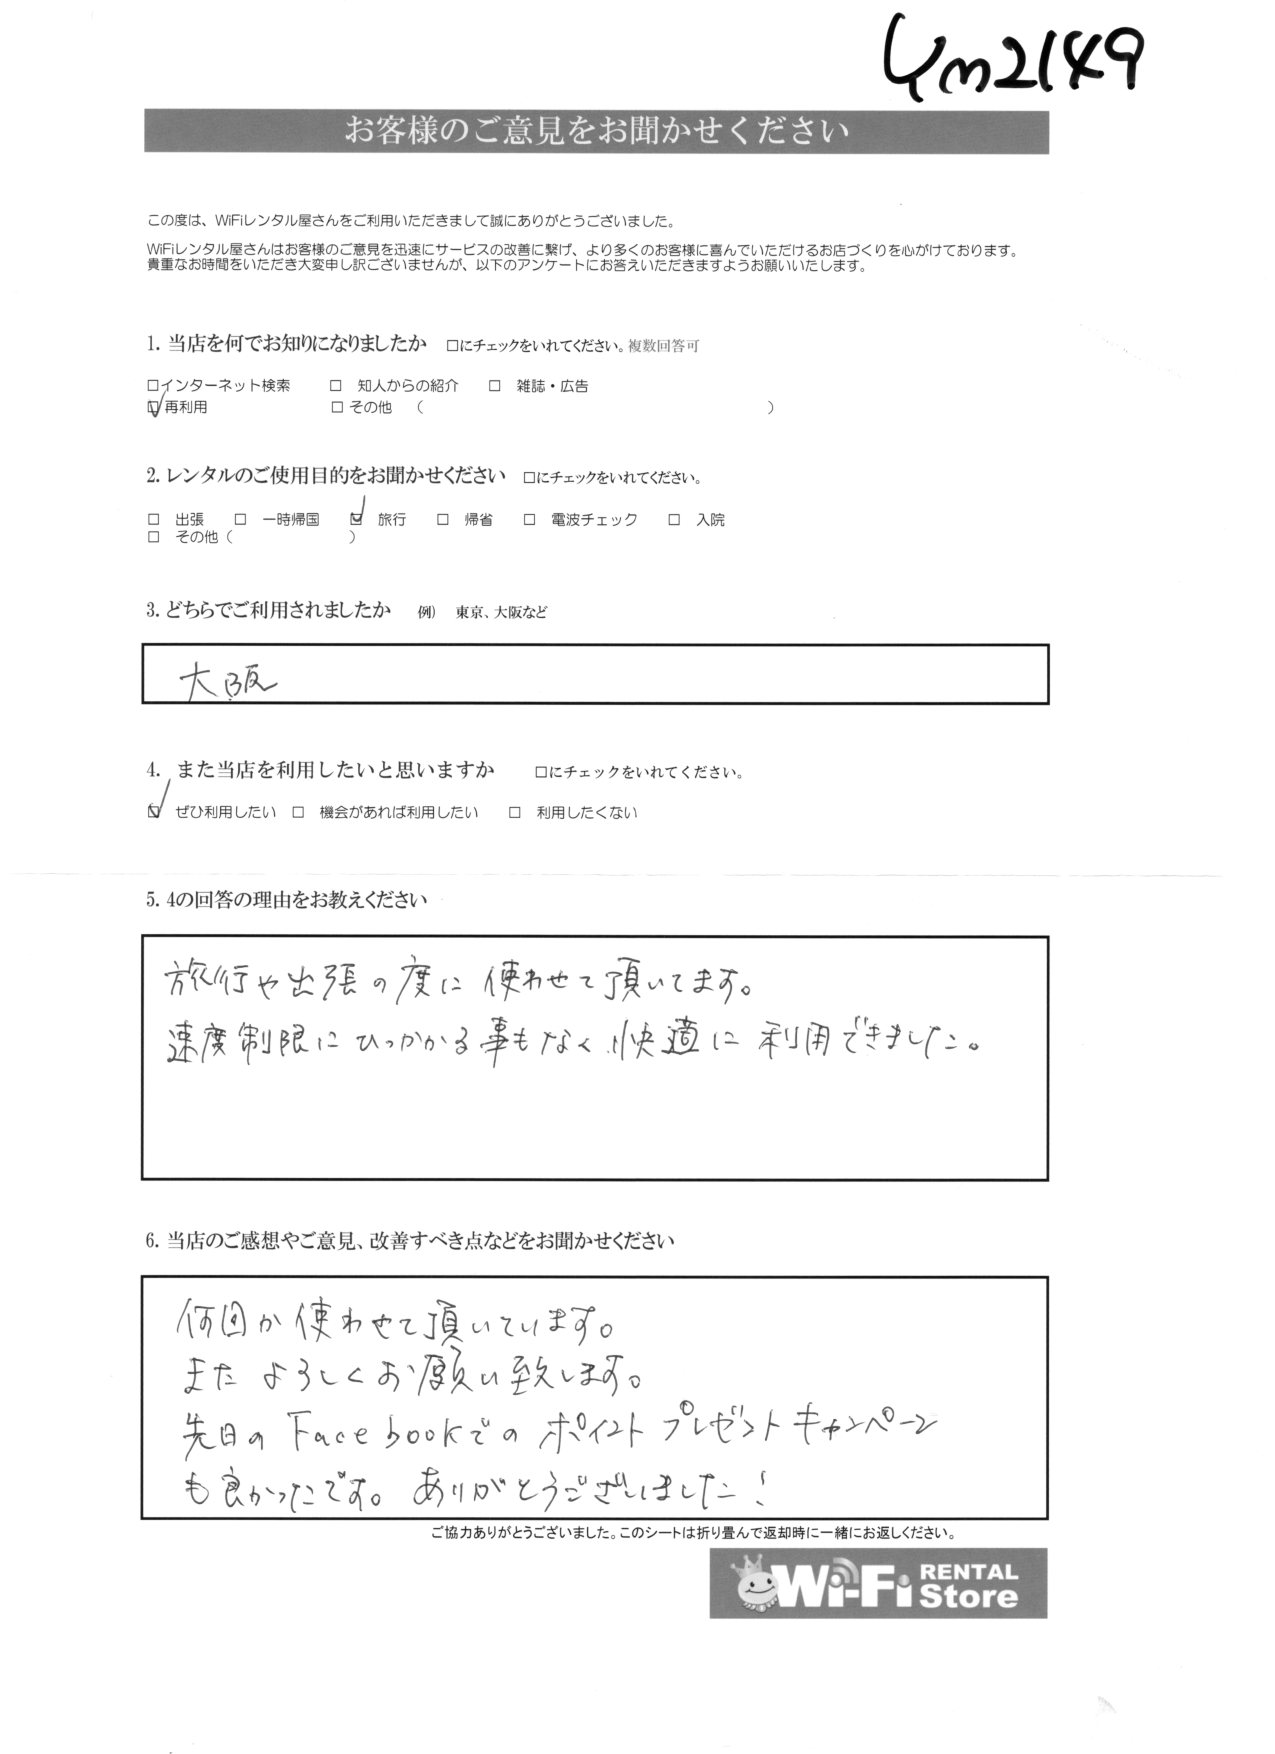 Ym2149
お客様のご意見をお聞かせください
この度は、WiFiレンタル屋さんをご利用いただきまして誠にありがとうございました。
WiFiレンタル屋さんはお客様のご意見を迅速にサービスの改善に繋げ、より多くのお客様に喜んでいただけるお店づくりを心がけております。
貴重なお時間をいただき大変申し訳ございませんが、以下のアンケートにお答えいただきますようお願いいたします。
1. 当店を何でお知りになりましたか □にチェックをいれてください。複数回答可
□インターネット検索 □ 知人からの紹介 □ 雑誌・広告
☑再利用 □ その他 （ ）
2. レンタルのご使用目的をお聞かせください □にチェックをいれてください。
□ 出張 □ 一時帰国 ☑ 旅行 □ 帰省 □ 電波チェック □ 入院
□ その他（ ）
3. どちらでご利用されましたか 例） 東京、大阪など
大阪
4. また当店を利用したいと思いますか □にチェックをいれてください。
☑ ぜひ利用したい □ 機会があれば利用したい □ 利用したくない
5. 4の回答の理由をお教えください
旅行や出張の度に使わせて頂いてます。
速度制限にひっかかる事もなく快適に利用できました。
6. 当店のご感想やご意見、改善すべき点などをお聞かせください
何回か使わせて頂いています。
またよろしくお願い致します。
先日のFacebookでのポイントプレゼントキャンペーン
も良かったです。ありがとうございました！
ご協力ありがとうございました。このシートは折り畳んで返却時に一緒にお返しください。
Wi-Fi RENTAL Store